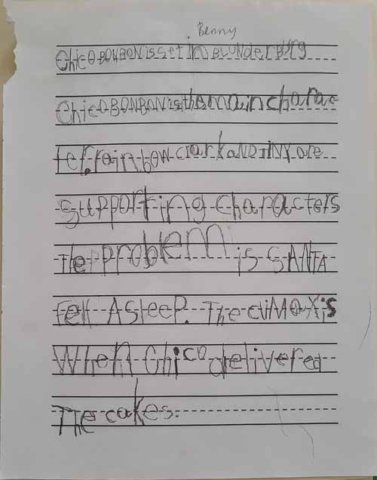 Benny
Chico BONBON is set IN BLUNderBurg
Chico BONBON is the main charac
ter. rainbow clark aND TINY are
supporting characters
The ProBlem is SANTA
fell ASleeP. The cliMax is
When Chico delivered
The cakes.